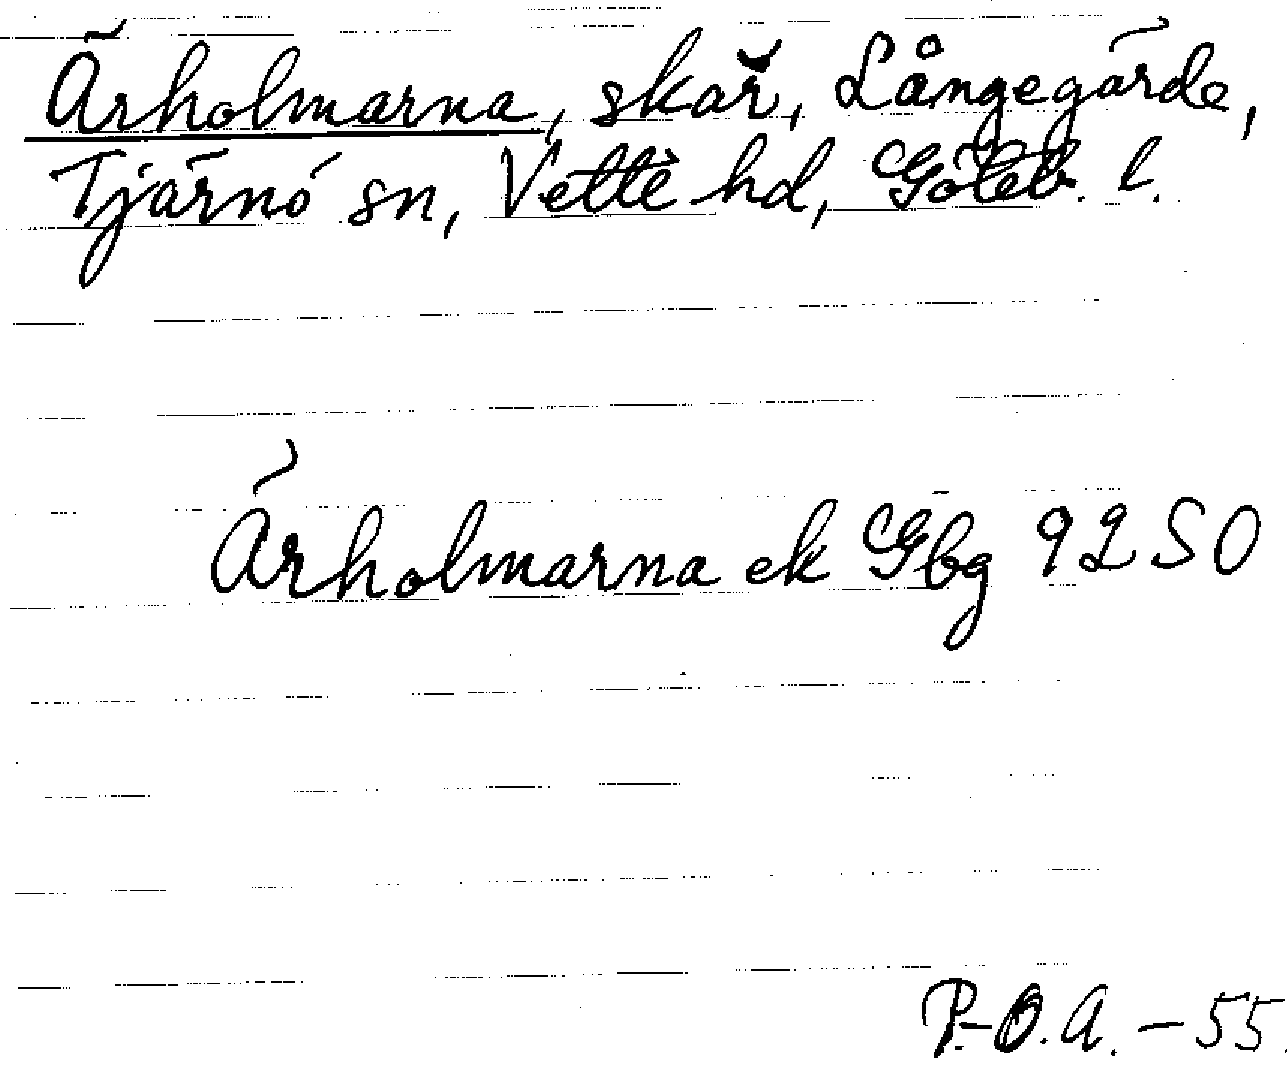 Ärholmarna, skär, Långegärde,
Tjärnö sn, Vette hd, Göteb. l.
Ärholmarna ek Gbg 9250
P.-O.A. - 55.